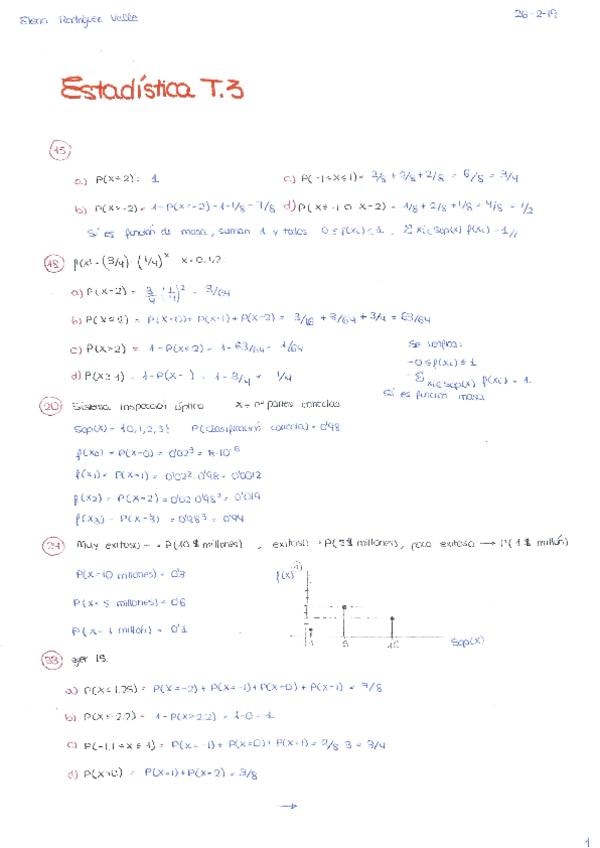 Elena Rodríguez Valle
26-2-19
Estadística T.3
15
a) P(X≤2) = 1
c) P(-1≤X≤1) = 2/8 + 2/8 + 2/8 = 6/8 = 3/4
b) P(X>-2) = 1-P(X=-2) = 1-1/8 = 7/8
d) P(X≤-1 o X=2) = 1/8 + 2/8 + 1/8 = 4/8 = 1/2
Sí es función de masa, suman 1 y todos 0≤f(xi)≤1.
18 f(x) = (3/4)·(1/4)^x x=0,1,2
a) P(X=2) = 3/4 (1/4)² = 3/64
b) P(X≤2) = P(X=0) + P(X=1) + P(X=2) = 3/16 + 3/64 + 3/4 = 63/64
c) P(X>2) = 1-P(X≤2) = 1-63/64 = 1/64
Se verifica:
-0≤f(xi)≤1
d) P(X≥1) = 1-P(X= ) = 1-3/4 = 1/4
-Σxi∈Sop(x) f(xi) = 1.
Sí es función masa
20 Sistema inspección óptico X= nº partes correctas
Sop(x) = {0,1,2,3} P(clasificación correcta) = 0'98
f(x0) = P(X=0) = 0'02³ = 8·10⁻⁶
f(x1) = P(X=1) = 0'02²·0'98 = 0'0012
f(x2) = P(X=2) = 0'02·0'98² = 0'019
f(x3) = P(X=3) = 0'98³ = 0'94
24 Muy exitoso → P(10 $ millones), exitoso → P(5 $ millones), poco exitoso → P(1 $ millón)
P(X=10 millones) = 0'3
f(x)
P(X=5 millones) = 0'6
P(X=1 millón) = 0'1
1 5 10 Sop(x)
33 ejer 15.
a) P(X≤1.25) = P(X=-2) + P(X=-1) + P(X=0) + P(X=1) = 7/8
b) P(X≤2.2) = 1-P(X>2.2) = 1-0 = 1
c) P(-1.1<X≤1) = P(X=-1) + P(X=0) + P(X=1) = 2/8·3 = 3/4
d) P(X>0) = P(X=1) + P(X=2) = 3/8
→
1